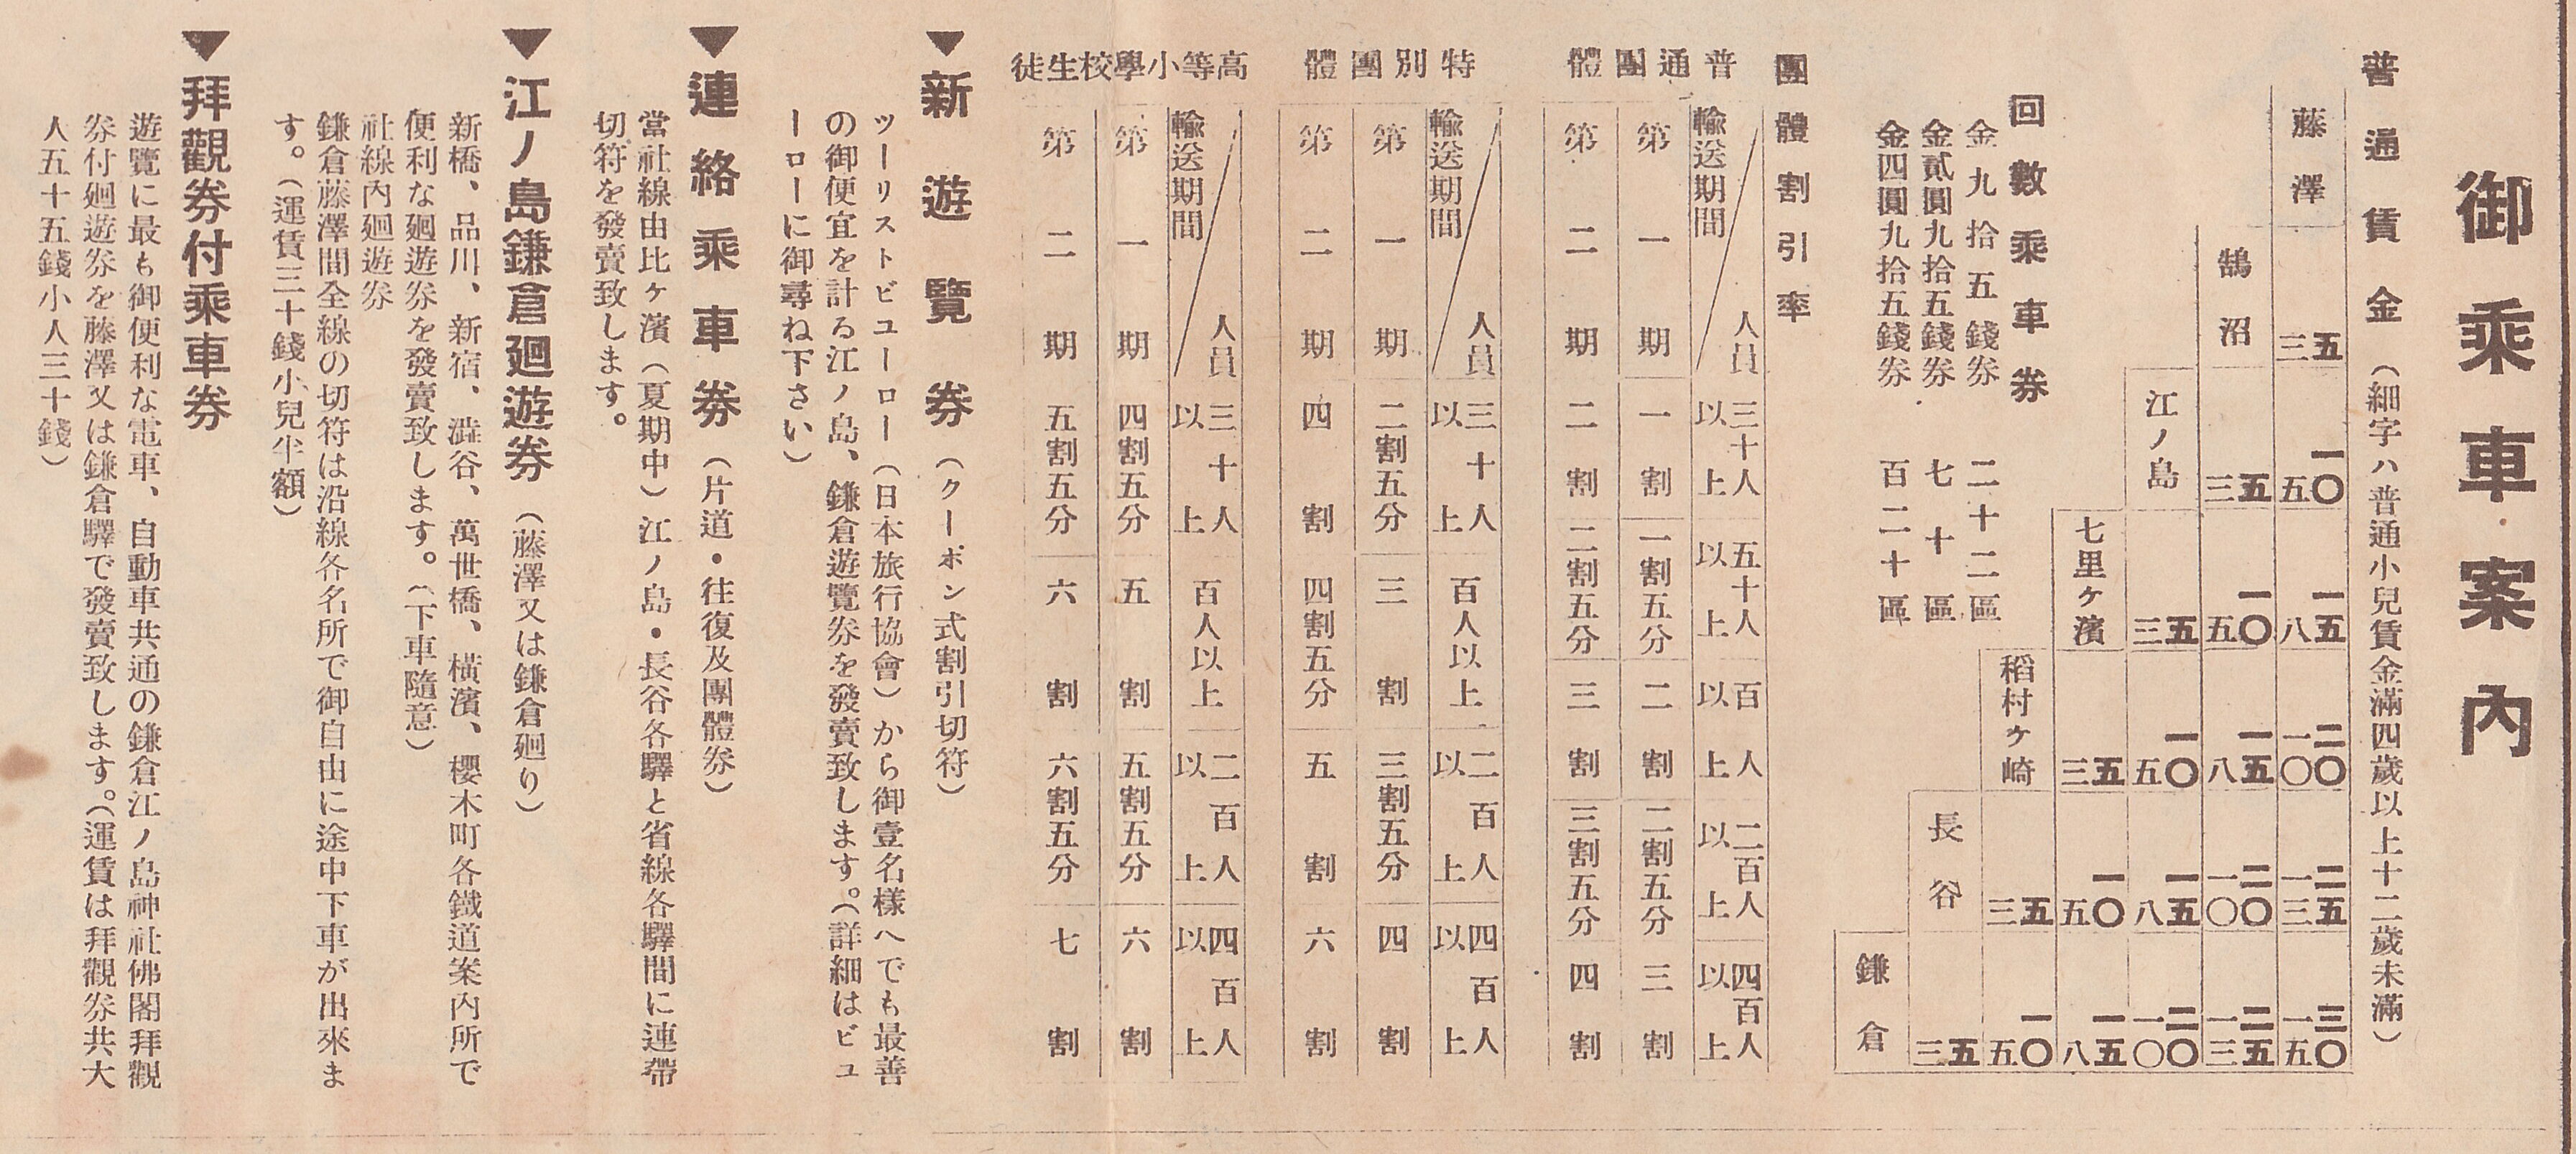 御乘車案內
普通賃金（細字ハ普通小兒賃金滿四歲以上十二歲未滿）
藤澤　五 三　一〇 五　一五 八　二〇 一〇　二五 一三　三〇 一五
鵠沼　五 三　一〇 五　一五 八　二〇 一〇　二五 一三
江ノ島　五 三　一〇 五　一五 八　二〇 一〇
七里ヶ濱　五 三　一〇 五　一五 八
稻村ヶ崎　五 三　一〇 五
長谷　五 三
鎌倉
回數乘車券
金九拾五錢券　二十二區
金貳圓九拾五錢券　七十區
金四圓九拾五錢券　百二十區
團體割引率
普通團體
輸送期間　人員　三十人以上　五十人以上　百人以上　二百人以上　四百人以上
第一期　一割　一割五分　二割　二割五分　三割
第二期　二割　二割五分　三割　三割五分　四割
特別團體
輸送期間　人員　三十人以上　百人以上　二百人以上　四百人以上
第一期　二割五分　三割　三割五分　四割
第二期　四割　四割五分　五割　六割
高等小學校生徒
輸送期間　人員　三十人以上　百人以上　二百人以上　四百人以上
第一期　四割五分　五割　五割五分　六割
第二期　五割五分　六割　六割五分　七割
▼新遊覽券（クーポン式割引切符）
ツーリストビユーロー（日本旅行協會）から御壹名樣へでも最善
の御便宜を計る江ノ島、鎌倉遊覽券を發賣致します。（詳細はビユ
ーローに御尋ね下さい）
▼連絡乘車券（片道・往復及團體券）
當社線由比ヶ濱（夏期中）江ノ島・長谷各驛と省線各驛間に連帶
切符を發賣致します。
▼江ノ島鎌倉廻遊券（藤澤又は鎌倉廻り）
新橋、品川、新宿、澁谷、萬世橋、橫濱、櫻木町各鐵道案內所で
便利な廻遊券を發賣致します。（下車隨意）
社線內廻遊券
鎌倉藤澤間全線の切符は沿線各名所で御自由に途中下車が出來ま
す。（運賃三十錢小兒半額）
▼拜觀券付乘車券
遊覽に最も御便利な電車、自動車共通の鎌倉江ノ島神社佛閣拜觀
券付廻遊券を藤澤又は鎌倉驛で發賣致します。（運賃は拜觀券共大
人五十五錢小人三十錢）